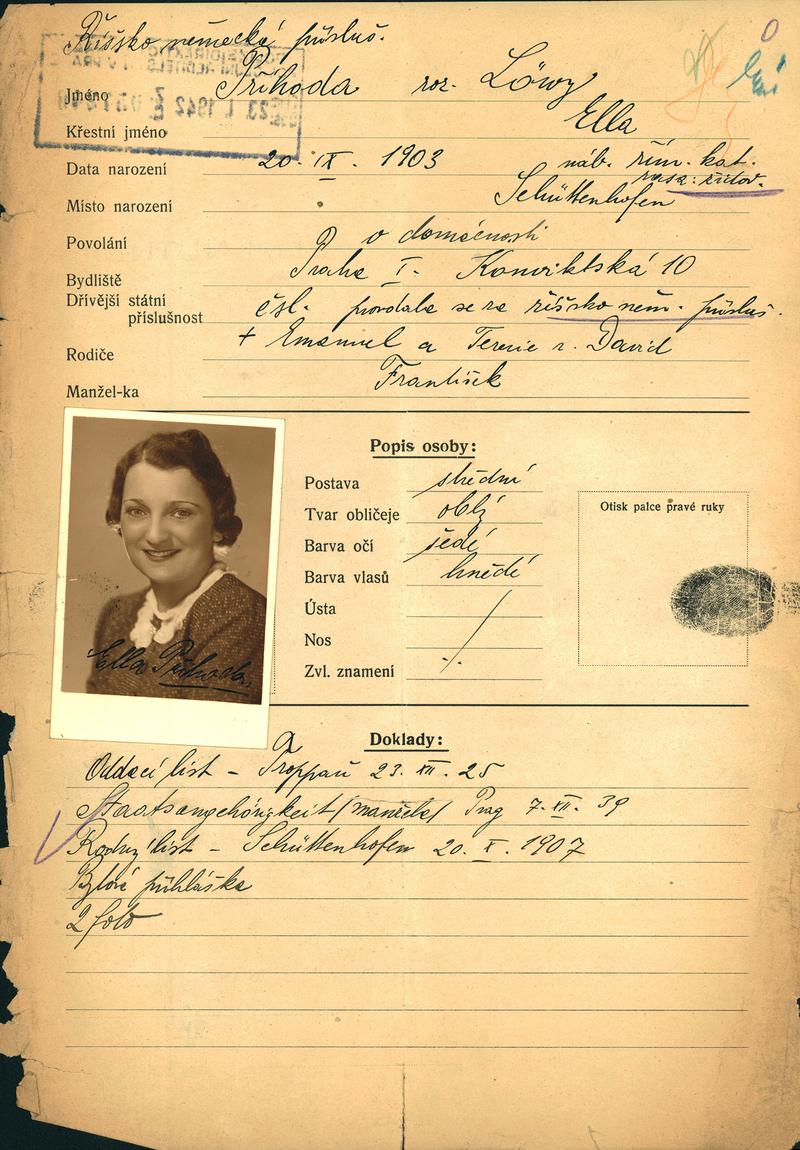 Říšsko německá přísluš.
Jméno Příhoda roz. Löwy
Křestní jméno Ella
Data narození 20. IX. 1903 náb. řím. kat.
rasa: židov.
Místo narození Schüttenhofen
Povolání v domácnosti
Bydliště Praha I. Konviktská 10
Dřívější státní příslušnost čsl. provdala se za říšsko něm. přísluš.
Rodiče + Emanuel a Terezie r. David
Manžel-ka František
Popis osoby:
Postava střední
Tvar obličeje oblý
Barva očí šedé
Barva vlasů hnědé
Ústa
Nos
Zvl. znamení
Otisk palce pravé ruky
Ella Příhoda
Doklady:
Oddací list - Troppau 23. XII. 25
Staatsangehörigkeit /manžela/ Prag 7. XII. 39
Rodný list - Schüttenhofen 20. X. 1907
Bytová přihláška
2 foto